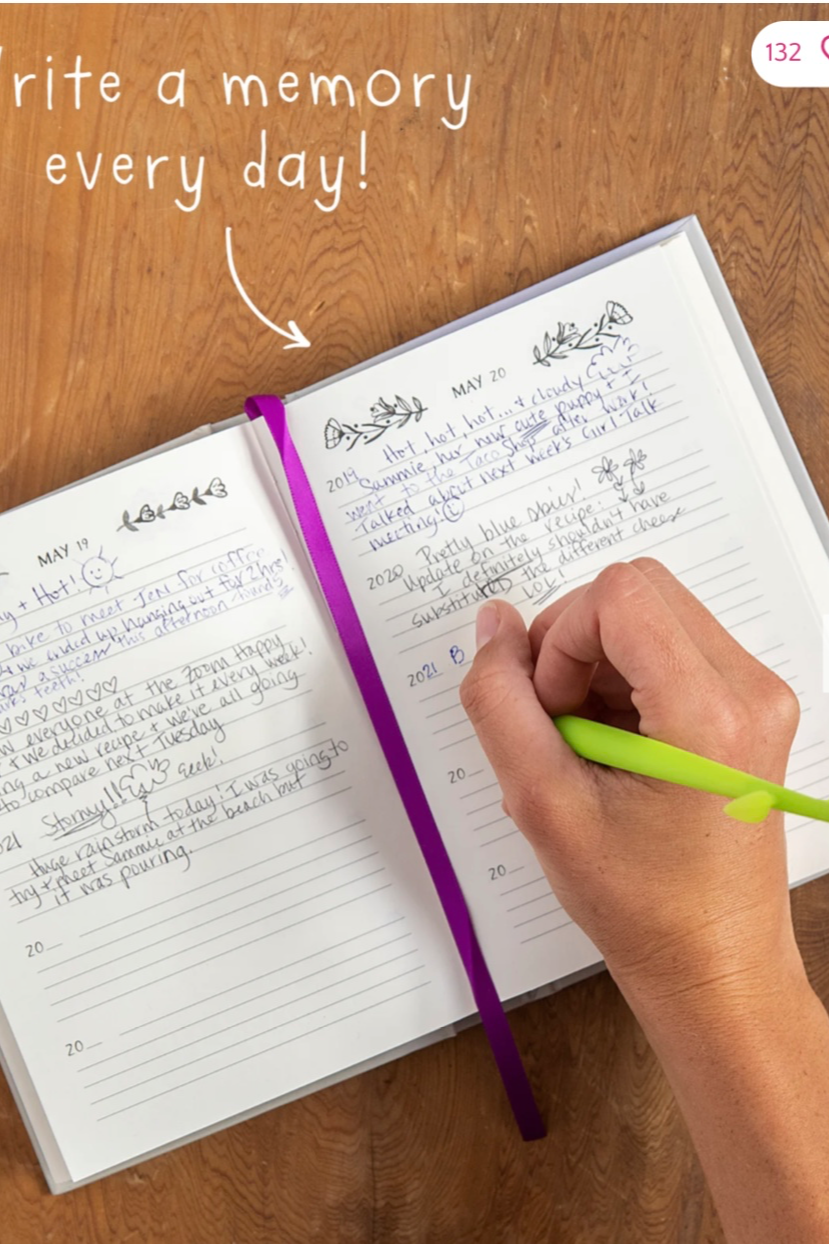 rite a memory
every day!
132
MAY 19
y + Hot!
bike to meet Jen for coffee
we ended up hanging out for 2 hrs!
a success this afternoon
teeth!
everyone at the Zoom Happy
+ we decided to make it every week!
ing a new recipe + we're all going
to compare next Tuesday
21 Stormy!! eek!
Huge rainstorm today! I was going to
try + meet Sammie at the beach but
it was pouring.
20
20
MAY 20
Hot, hot, hot... + cloudy
2019 Sammie, her new cute puppy + I
went to the Taco Shop after work!
Talked about next week's Girl Talk
meeting.
2020 Pretty blue skies!
Update on the recipe:
I definitely shouldn't have
substituted the different cheese
LOL!
2021 B
20
20